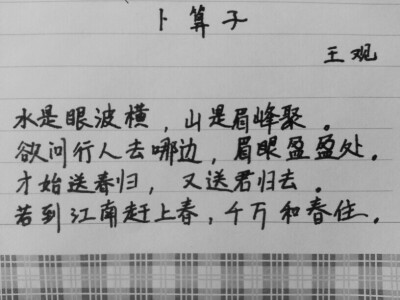 卜算子
王观
水是眼波横，山是眉峰聚。
欲问行人去哪边，眉眼盈盈处。
才始送春归，又送君归去。
若到江南赶上春，千万和春住。